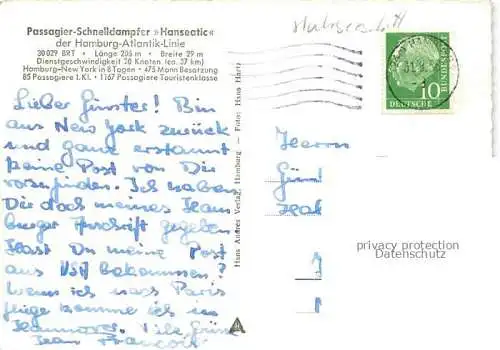 Passagier-Schnelldampfer »Hanseatic«
der Hamburg-Atlantik-Linie
30 029 BRT • Länge 205 m • Breite 29 m
Dienstgeschwindigkeit 20 Knoten (ca. 37 km)
Hamburg–New York in 8 Tagen • 475 Mann Besatzung
85 Passagiere I. Kl. • 1167 Passagiere Touristenklasse
Lieber Günster! Bin
aus New York zurück
und ganz erstaunt
keine Post von Dir
vorzufinden. Ich haben
Dir doch meines Ham
burger Anschrift gegeben
Hast Du meine Post
aus USA bekommen?
Wenn ich nach Paris
fliege komme ich in
Hannover. Viele Grüße
Jean François
Hans Andres Verlag, Hamburg – Foto: Hans Hartz
DEUTSCHE
10
Herrn
Gün
privacy protection
Datenschutz